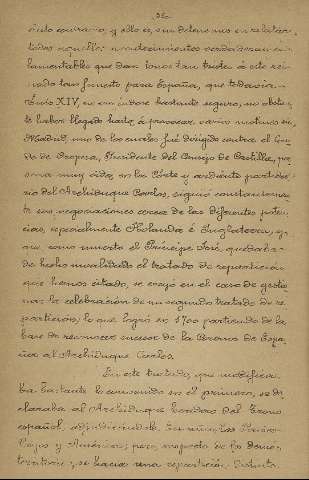 éxito contrario; y sólo es, sin detenernos en relatar
todos aquellos acontecimientos verdaderamen
lamentables que dan tonos tan tristes á este rei
nado tan funesto para España, que todavia
Luis XIV, no era hombre bastante seguro, no obstan
te haber llegado hasta á provocar varios motines en
Madrid, uno de los cuales fué dirigido contra el Con
de de Oropesa, Presidente del Consejo de Castilla, per
sona muy oida en la Córte y ardiente partida
rio del Archiduque Carlos, siguió constantemen
te sus negociaciones cerca de las diferentes poten
cias, especialmente Holanda é Inglaterra, y
como muerto el Príncipe José, quedaba
de hecho invalidado el tratado de repartición
que hemos citado, se creyó en el caso de gestio
nar la celebración de un segundo tratado de re
partición, lo que logró en 1700 partiendo de la
base de reconocer sucesor de la Corona de Espa
ña al Archiduque Carlos.
En este tratado, que modifica
ba bastante lo convenido en el primero, se de
claraba al Archiduque heredero del trono
español, adjudicándole España, los Paises
Bajos y América; pero, respecto de los demas
territorios, se hacia una repartición distinta